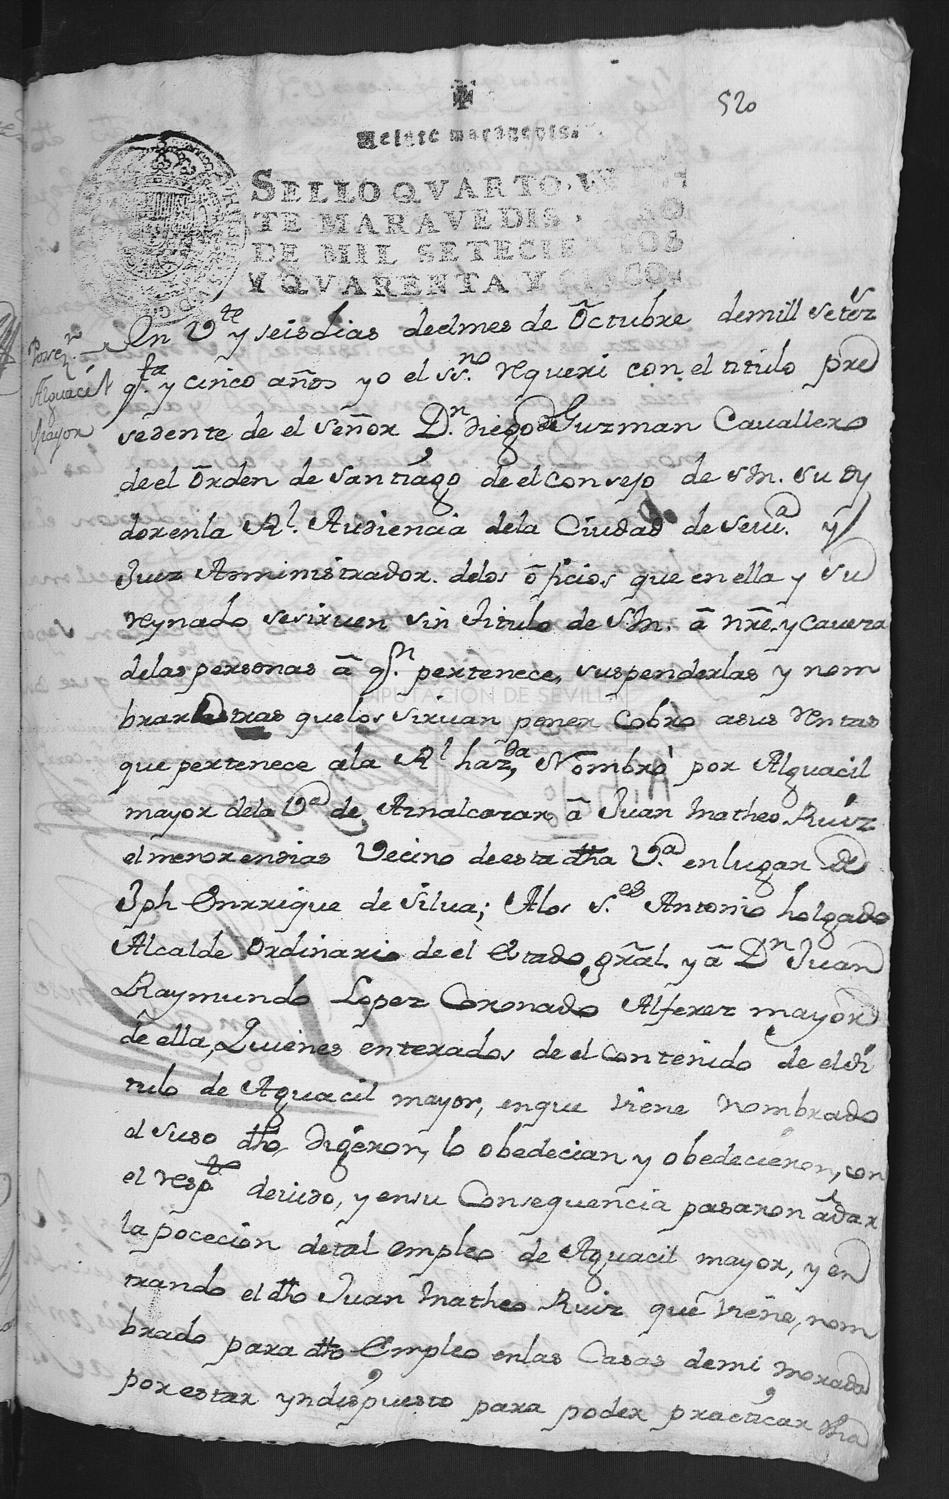 520
Veinte maravedis.
SELLO QVARTO, VEIN
TE MARAVEDIS, AÑO
DE MIL SETECIENTOS
Y QVARENTA Y CINCO.
Alguacil
Mayor
En Vte y seis dias de el mes de Octubre de mill setez
qta y cinco años yo el ssno requeri con el titulo pre
sedente de el señor Dn Diego de Guzman Cavallero
de el Orden de Santiago de el Consejo de S.M. su oy
dor en la Rl. Audiencia de la Ciudad de Seva. y
Juez Anministrador. de los oficios que en ella y su
reynado se siruen sin titulo de S.M. â nre. y caveza
de las personas â qn. pertenece, suspenderlas y nom
brar otras que los siruan poner cobro a sus rentas
que pertenece a la Rl hazda, Nombró por Alguacil
mayor de la Va de Aznalcazar â Juan Matheo Ruiz
el menor en dias Vecino de esta dha Va en lugar de
Jph Enrrique de Silua; Alos s.es Antonio holgado
Alcalde Ordinario de el Estado gral. y â Dn Juan
Raymundo Lopez Coronado Alferez mayor
de ella, Quienes enterados de el Contenido de el ti
tulo de Aguacil mayor, en que viene nombrado
el suso dho, digeron, lo obedecian y obedecieron, con
el respto deuido, y en su Consequencia pasaron â dar
la pocecion de tal empleo de Aguacil mayor, y en
trando el dho Juan Matheo Ruiz que viene, nom
brado para dho Empleo en las Casas de mi morada
por estar yndispuesto para poder practicar dha
DIPUTACIÓN DE SEVILLA